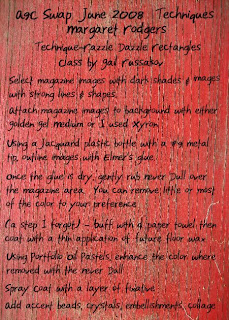 agc Swap June 2008 Techniques
margaret rodgers
Technique-razzle Dazzle rectangles
class by gail russakov
Select magazine images with dark shades & images
with strong lines & shapes.
attach magazine images to background with either
golden gel medium or I used xyron
Using a Jacquard plastic bottle with a metal
tip, outline images with Elmer's glue
Once the glue is dry, gently rub never Dull over
the magazine area. You can remove little or most
of the color to your preference
(a step I forgot) - buff with a paper towel then
coat with a thin application of future floor wax
Using Portfolio Oil Pastels, enhance the color where
removed with the never Dull
Spray coat with a layer of fixative
add accent beads, crystals, embellishments, collage